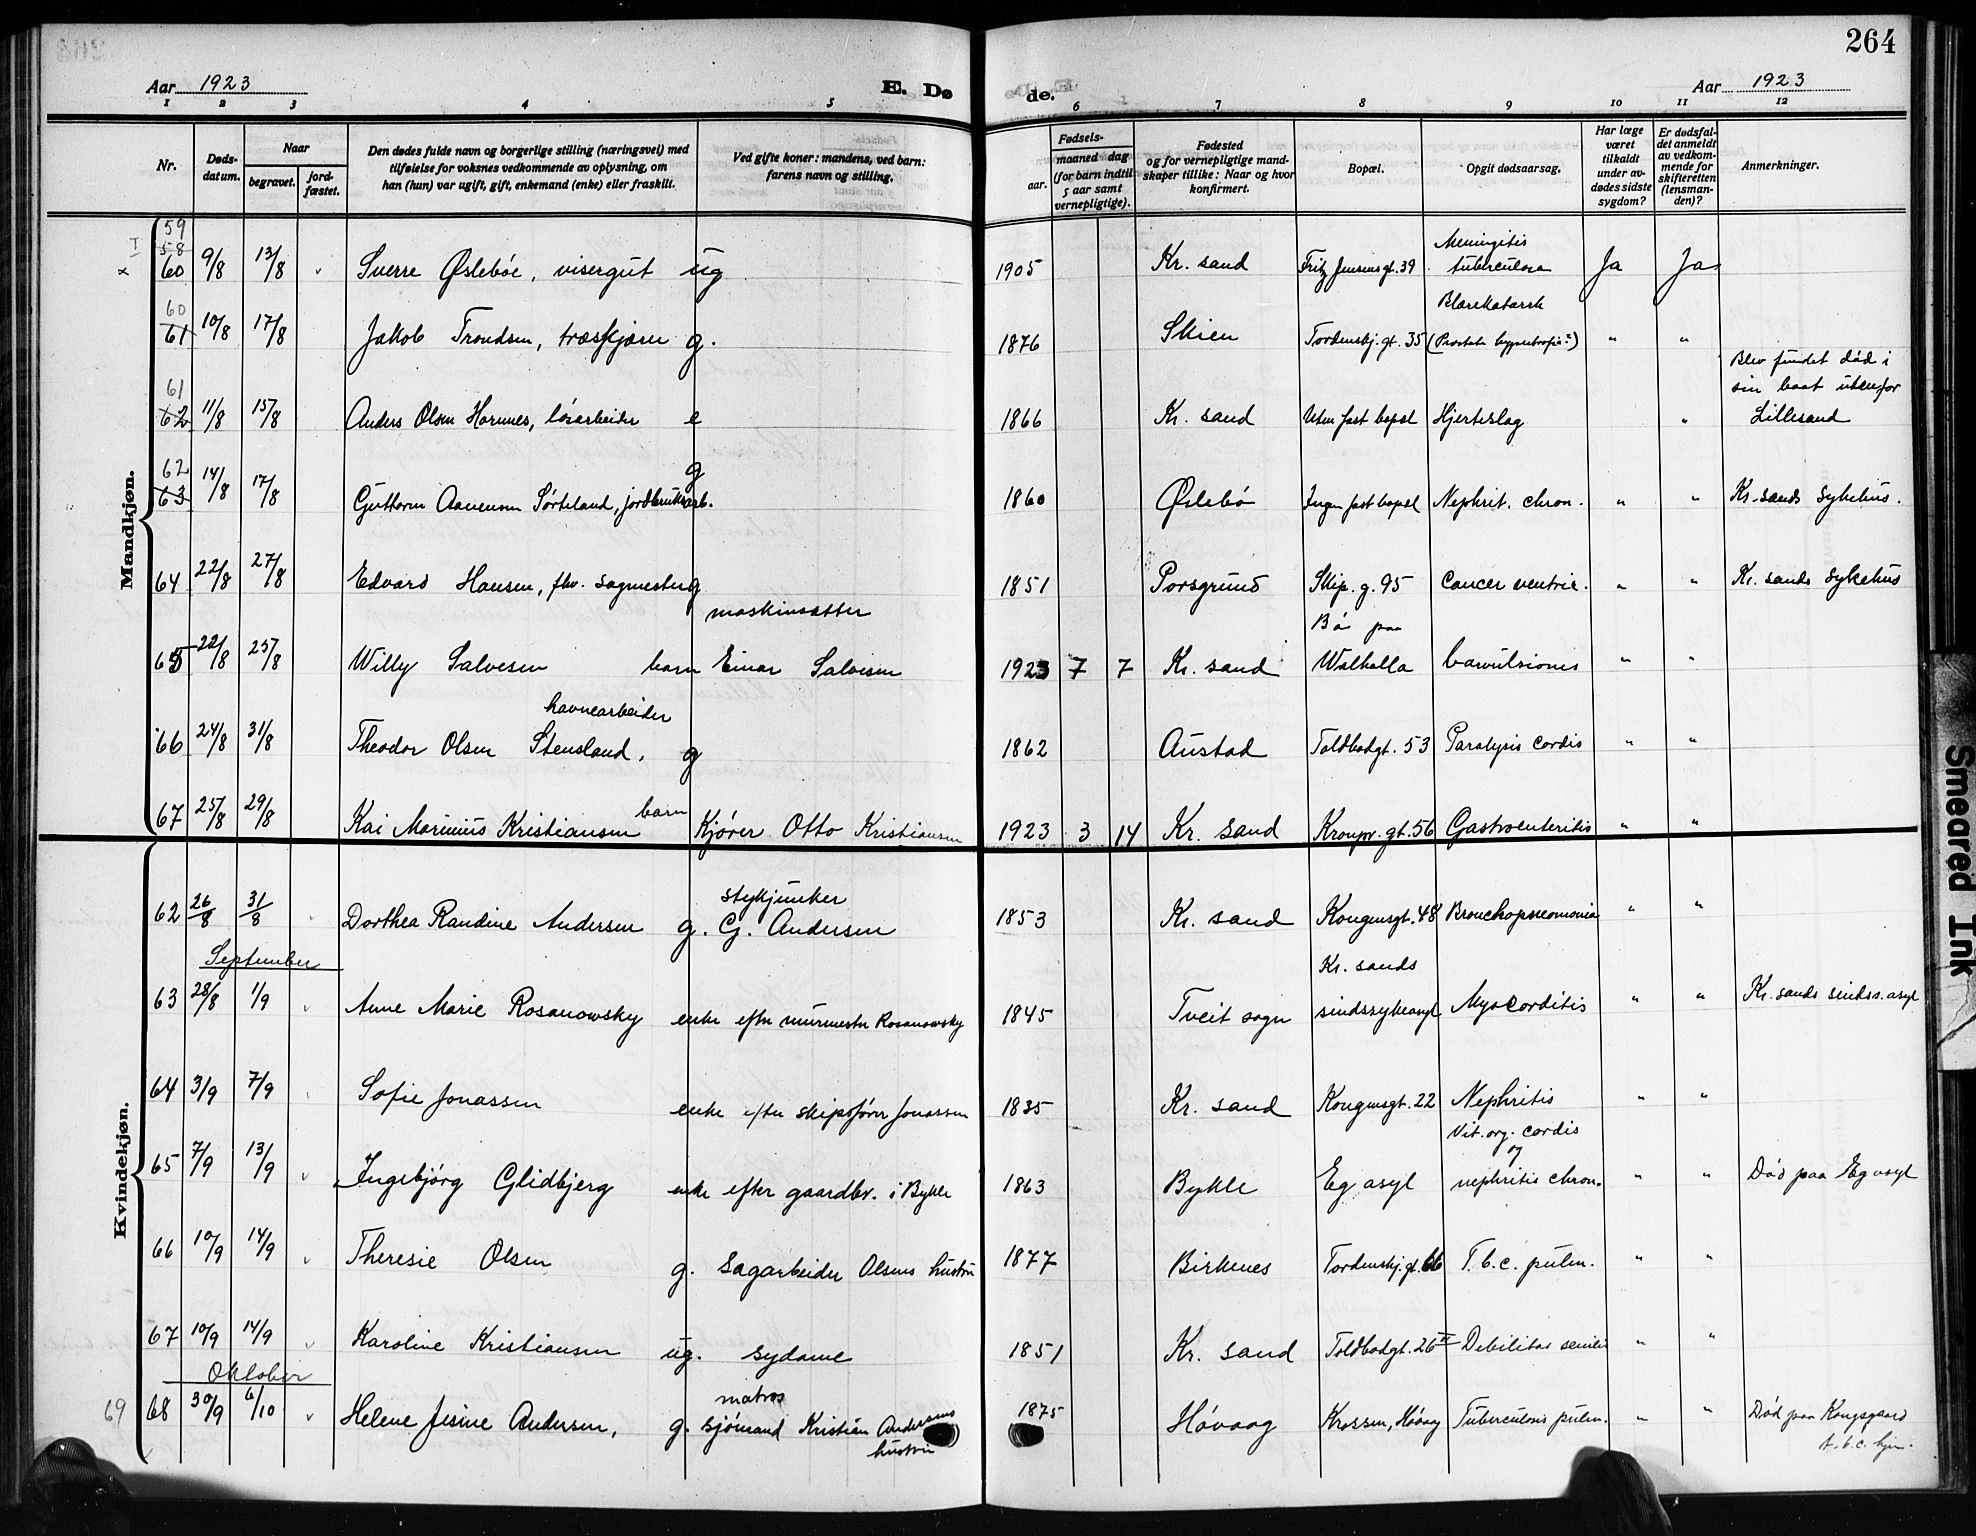 264
Aar 1923 E. Dø
de. Aar 1923
1 2 3 4 5 6 7 8 9 10 11 12
Nr.
Døds-
datum.
Naar
begravet.
jord-
fæstet.
Den dødes fulde navn og borgerlige stilling (næringsvei) med
tilføielse for voksnes vedkommende av oplysning, om
han (hun) var ugift, gift, enkemand (enke) eller fraskilt.
Ved gifte koner: mandens, ved barn:
farens navn og stilling.
Fødsels-
aar.
maaned dag
(for barn indtil
5 aar samt
vernepligtige).
Fødested
og for vernepligtige mand-
skaper tillike: Naar og hvor
konfirmert.
Bopæl.
Opgit dødsaarsag.
Har læge
været
tilkaldt
under av-
dødes sidste
sygdom?
Er dødsfal-
det anmeldt
av vedkom-
mende for
skifteretten
(lensman-
den)?
Anmerkninger.
Mandkjøn.
59
58 Meningitis
60 9/8 13/8 Sverre Øslebøe, visergut ug 1905 Kr. sand Fritz Jensensgt. 39 tuberculosa Ja Ja
60 Blærekatarrh
61 10/8 17/8 Jakob Trondsen, træskjærer g. 1876 Skien Tordenskj. gt. 35 (Prostata hypertrofie?) " "
Blev fundet død i
61 sin baat utenfor
62 11/8 15/8 Anders Olsen Hornnes, løsarbeider e 1866 Kr. sand Uten fast bopæl Hjerteslag " Lillesand
62 g
63 14/8 17/8 Guttorm Aanensen Sørteland, jordbruksarb. 1860 Øslebø Ingen fast bopæl Nephrit. chron. " " Kr. sands sykehus.
64 22/8 27/8 Edvard Hansen, fhv. sagmester g 1851 Porsgrund Skip. g. 95 Cancer ventric. " " Kr. sands sykehus
maskinsætter Bø paa
65 22/8 25/8 Willy Salvesen barn Einar Salvesen 1923 7 7 Kr. sand Walhalla Convulsiones " "
havnearbeider
66 24/8 31/8 Theodor Olsen Stensland, g 1862 Austad Toldbodgt. 53 Paralysis cordis " "
67 25/8 29/8 Kai Marinius Kristiansen barn Kjører Otto Kristiansen 1923 3 14 Kr. sand Kronpr. gt. 56 Gastroenteritis " "
Kvindekjøn.
stykjunker
62 26/8 31/8 Dorthea Randine Andersen g. G. Andersen 1853 Kr. sand Kongensgt. 48 Bronchopneomonia " "
September Kr. sands
63 28/8 1/9 Anne Marie Rosanowsky enke efter murmester Rosanowsky 1845 Tveit sogn sindssykeasyl Myocorditis " " Kr. sands sindss. asyl
64 3/9 7/9 Sofie Jonassen enke efter skipsfører Jonassen 1835 Kr. sand Kongensgt. 22 Nephritis " "
Vit. org. cordis
og
65 7/9 13/9 Ingebjørg Glidbjerg enke efter gaardbr. i Bykle 1863 Bykle Eg asyl nephritis chron. " " Død paa Eg asyl
66 10/9 14/9 Theresie Olsen g. Sagarbeider Olsens hustru 1877 Birkenes Tordenskj. gt. 66 T. b. c. pulm. " "
67 10/9 14/9 Karoline Kristiansen ug. sydame 1851 Kr. sand Toldbodgt. 26 II Debilitas senilis " "
Oktober
matros
69 68 30/9 6/10 Helene Jesine Andersen, g. sjømand Kristian Andersens 1875 Høvaag Krossen, Høvaag Tuberculosis pulm. " " Død paa Kongsgaard
hustru t. b. c. hjem.
Smeared Ink